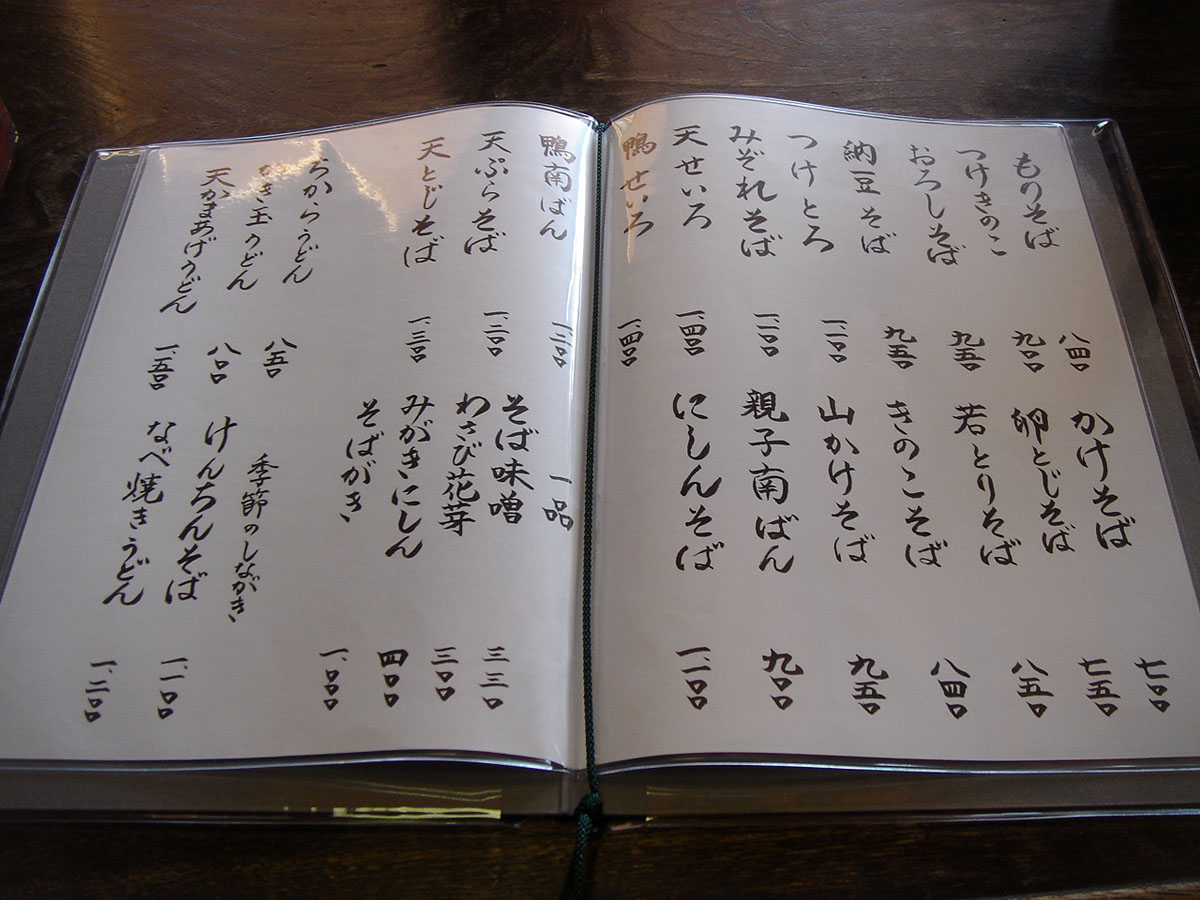 もりそば 八四〇
つけきのこ 九〇〇
おろしそば 九五〇
納豆そば 九五〇
つけとろ 一、一〇〇
みぞれそば 一、一〇〇
天せいろ 一、四〇〇
鴨せいろ 一、四〇〇
かけそば 七〇〇
卵とじそば 七五〇
若とりそば 八五〇
きのこそば 八四〇
山かけそば 九五〇
親子南ばん 九〇〇
にしんそば 一、一〇〇
鴨南ばん 一、三〇〇
天ぷらそば 一、二〇〇
天とじそば 一、三〇〇
ちからうどん 八五〇
かき玉うどん 八〇〇
天かまあげうどん 一、五〇〇
一品
そば味噌 三三〇
わさび花芽 三〇〇
みがきにしん 四〇〇
そばがき 一、〇〇〇
季節のしながき
けんちんそば 一、一〇〇
なべ焼きうどん 一、三〇〇